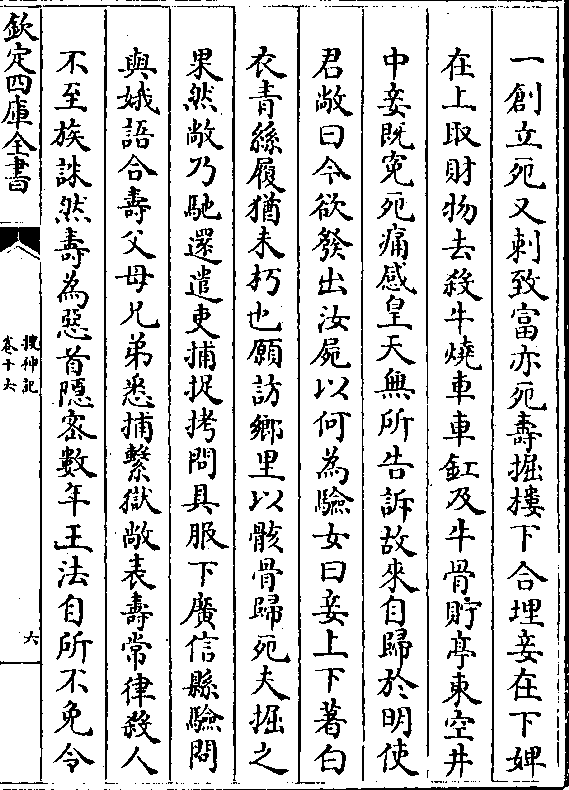 一創立死又刺致富亦死壽掘樓下合埋妾在下婢
在上取財物去殺牛燒車車釭及牛骨貯亭東空井
中妾既寃死痛感皇天無所告訴故來自歸於明使
君敞曰今欲發出汝屍以何為驗女曰妾上下著白
衣青絲履猶未朽也願訪鄉里以骸骨歸死夫掘之
果然敞乃馳還遣吏捕捉拷問具服下廣信縣驗問
與娥語合壽父母兄弟悉捕繫獄敞表壽常律殺人
不至族誅然壽為惡首隱宻數年王法自所不免令
欽定四庫全書
搜神記
卷十六
六